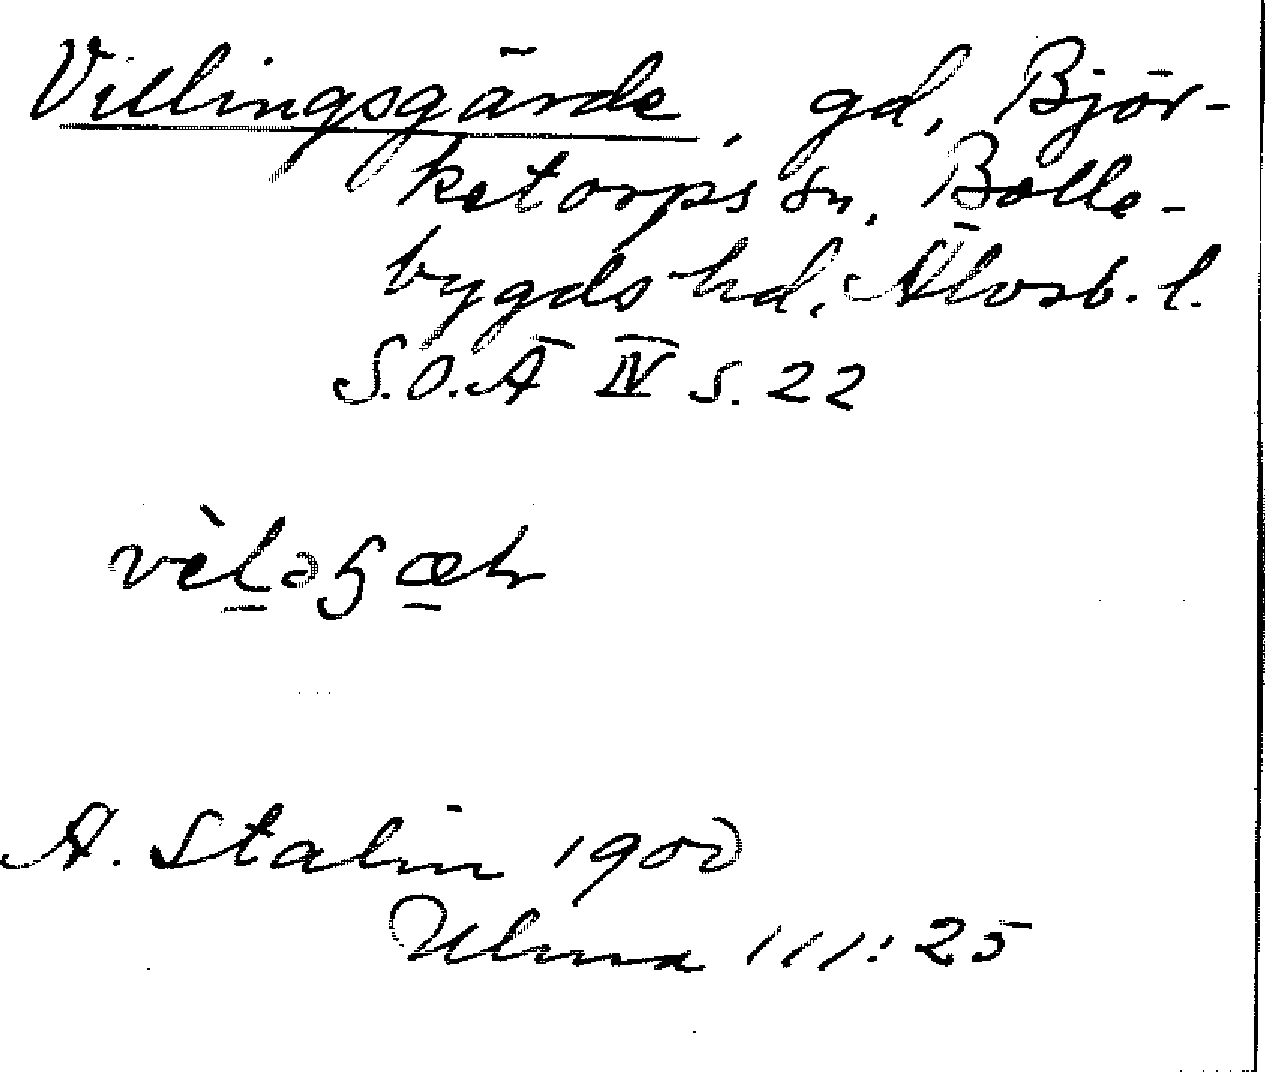 Villingsgärde, gd, Björ-
ketorps sn, Bolle-
bygds hd, Älvsb. l.
S.O.Ä IV s. 22
A. Stalin 1900
Ulma 111:25